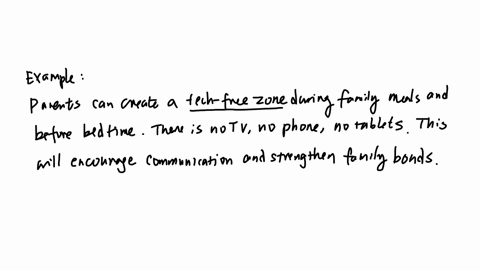 Example:
Parents can create a tech-free zone during family meals and
before bedtime. There is no TV, no phone, no tablets. This
will encourage communication and strengthen family bonds.